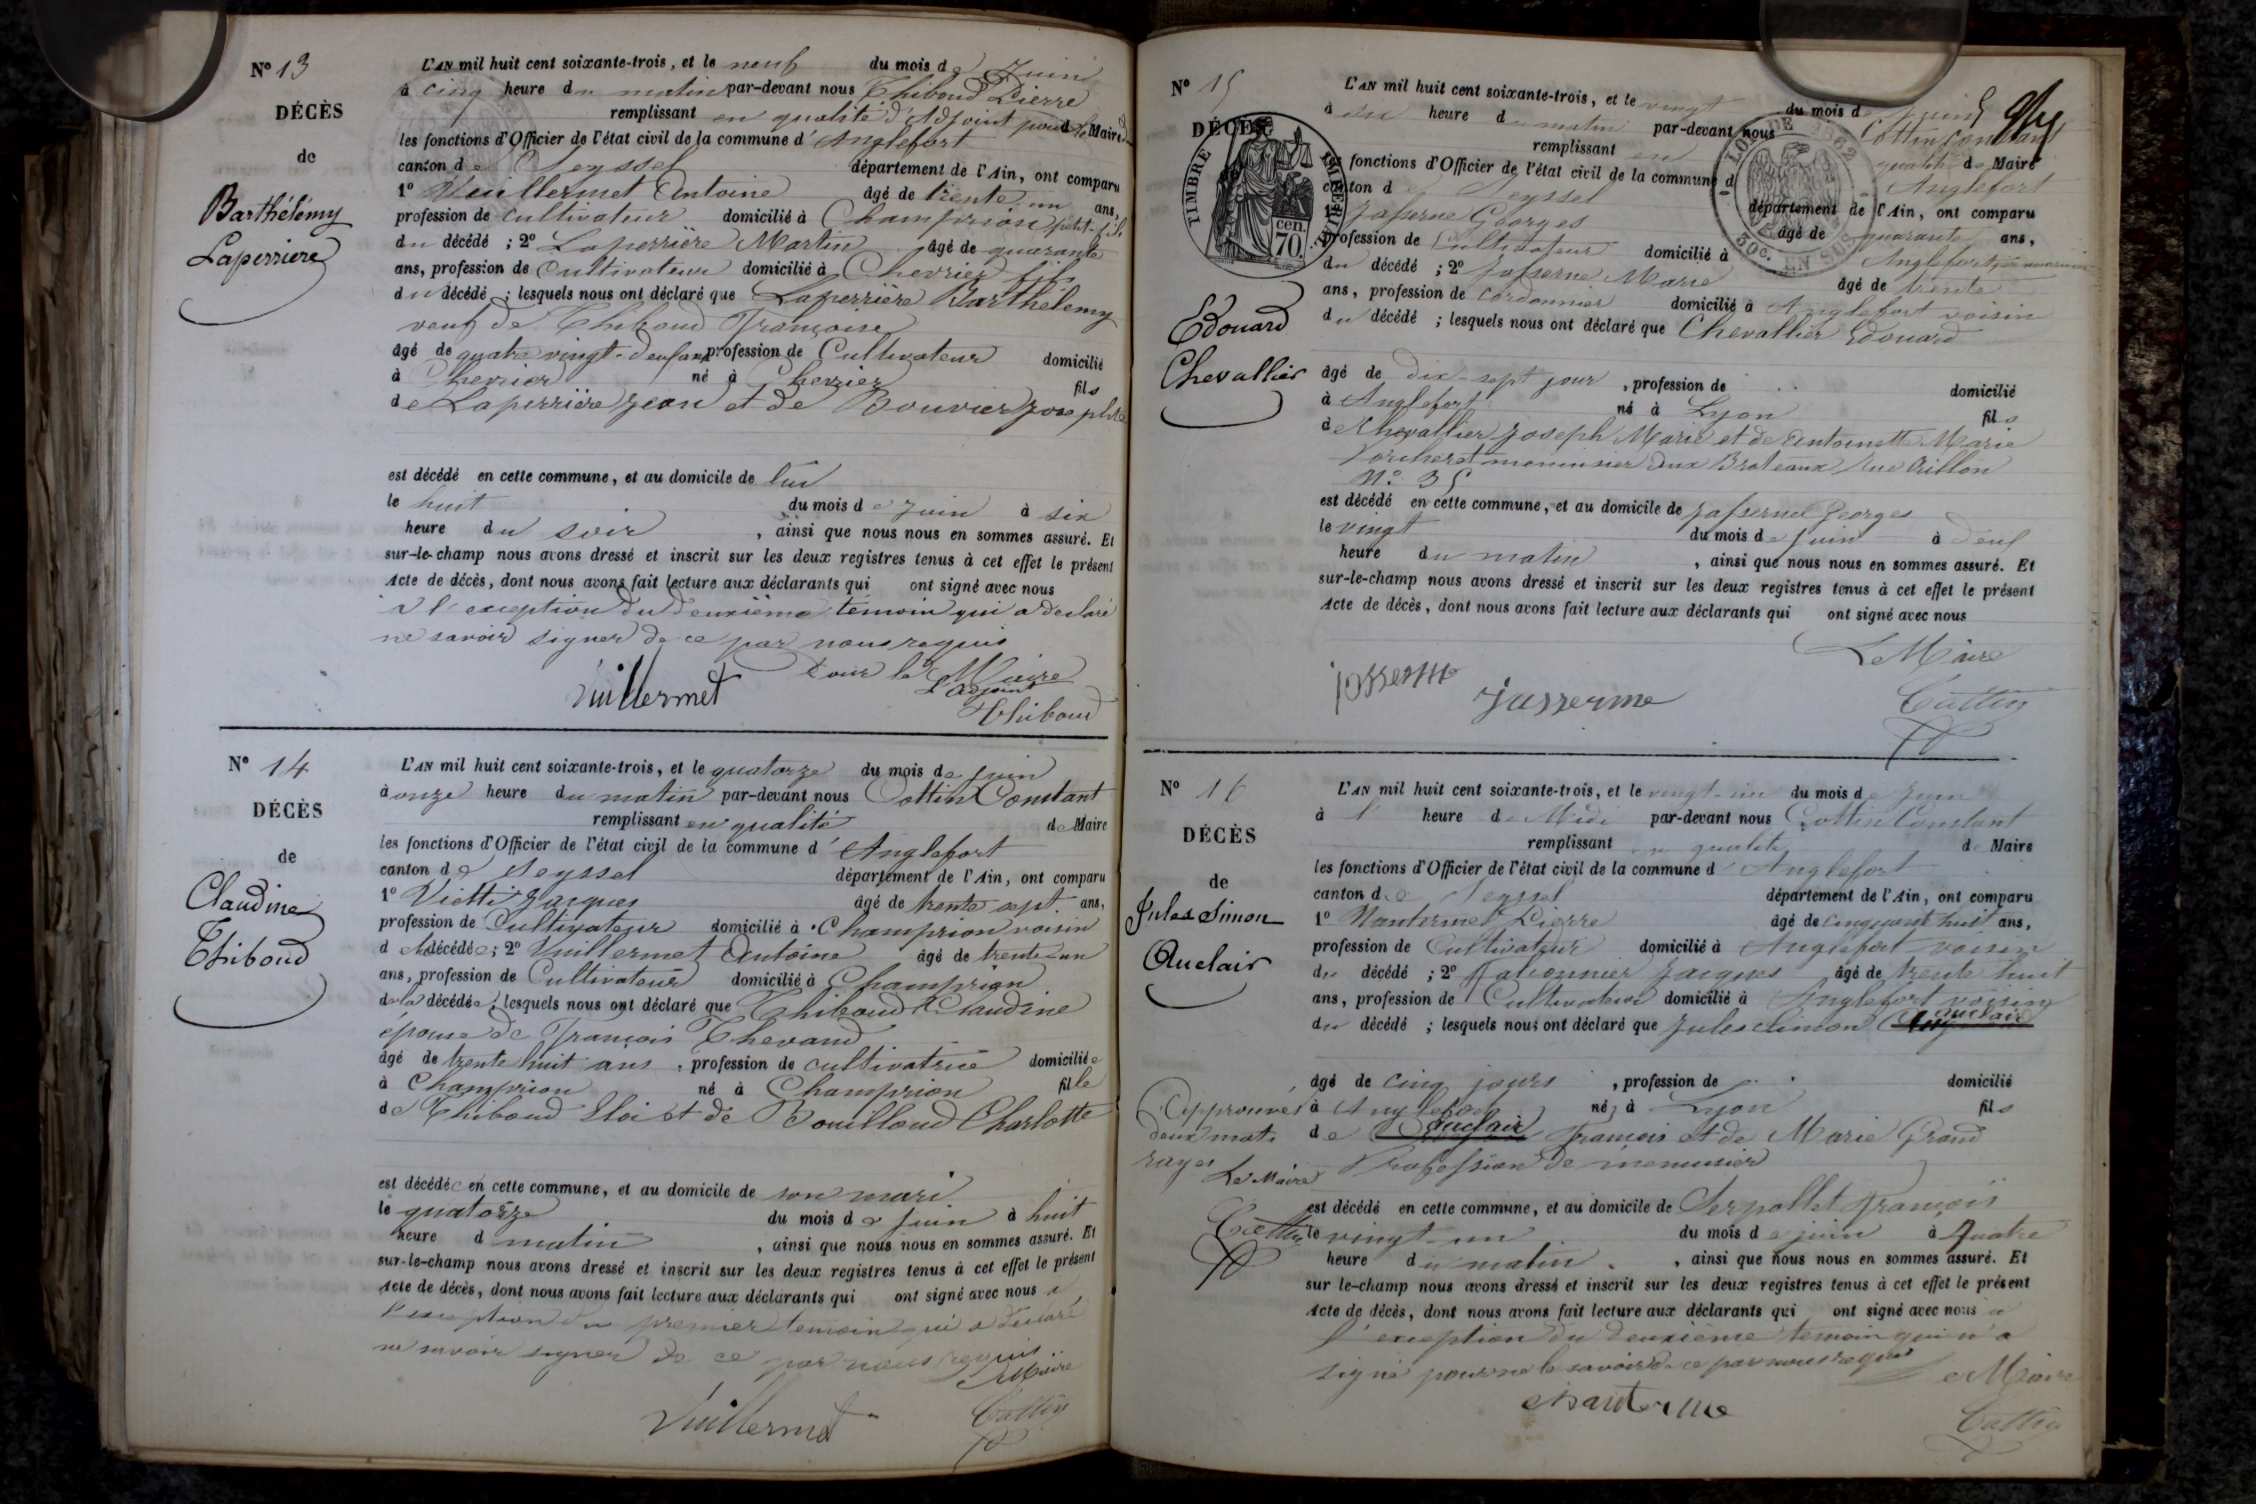 N° 13
DÉCÈS
de
Barthélémy
Laperriere
L'AN mil huit cent soixante-trois, et le neuf du mois de Juin
à cinq heure du matin par-devant nous Thiboud Pierre
remplissant en qualité d'Adjoint pour le Maire
les fonctions d'Officier de l'état civil de la commune d'Anglefort
canton de Seyssel département de l'Ain, ont comparu
1° Vuillermet Antoine âgé de trente un ans,
profession de cultivateur domicilié à Champrion petit-fils
du décédé ; 2° Laperrière Martin âgé de quarante
ans, profession de Cultivateur domicilié à Chevrier fils
du décédé ; lesquels nous ont déclaré que Laperrière Barthélemy
veuf de Thiboud Françoise
âgé de quatre vingt-deux ans profession de Cultivateur domicilié
à Chevrier né à Chevrier fils
de Laperrière Jean et de Bouvier Josephte
est décédé en cette commune, et au domicile de lui
le huit du mois de Juin à six
heure du soir, ainsi que nous nous en sommes assuré. Et
sur-le-champ nous avons dressé et inscrit sur les deux registres tenus à cet effet le présent
Acte de décès, dont nous avons fait lecture aux déclarants qui ont signé avec nous
à l'exception du deuxième témoin qui a declaré
ne savoir signer de ce par nous requis
Pour le Maire
L'adjoint
Vuillermet
Thiboud
N° 14
DÉCÈS
de
Claudine
Thiboud
L'AN mil huit cent soixante-trois, et le quatorze du mois de juin
à onze heure du matin par-devant nous Cottin Constant
remplissant en qualité de Maire
les fonctions d'Officier de l'état civil de la commune d'Anglefort
canton de Seyssel département de l'Ain, ont comparu
1° Vietti Jacques âgé de trente sept ans,
profession de Cultivateur domicilié à Champrion voisin
d décédée ; 2° Vuillermet Antoine âgé de trente un
ans, profession de Cultivateur domicilié à Champrion
de la décédée ; lesquels nous ont déclaré que Thiboud Claudine
épouse de François Thevand
âgé de trente huit ans, profession de cultivatrice domiciliée
à Champrion né à Champrion fille
de Thiboud Eloi et de Bouilloud Charlotte
est décédée en cette commune, et au domicile de son mari
le quatorze du mois de Juin à huit
heure d matin, ainsi que nous nous en sommes assuré. Et
sur-le-champ nous avons dressé et inscrit sur les deux registres tenus à cet effet le présent
Acte de décès, dont nous avons fait lecture aux déclarants qui ont signé avec nous a
l'exception du premier temoin qui a déclaré
ne savoir signer de ce par nous requis
Maire
Vuillermet
Cottin
N° 15
DÉCÈS
TIMBRE IMPERIAL
70 cen.
LOI DE 1862
30c. EN SUS
Edouard
Chevallier
L'AN mil huit cent soixante-trois, et le vingt du mois de juin
à dix heure du matin par-devant nous Cottin Constant
remplissant en qualité de Maire
les fonctions d'Officier de l'état civil de la commune d Anglefort
canton de Seyssel département de l'Ain, ont comparu
1° Jasserne Georges âgé de quarante ans,
profession de Cultivateur domicilié à Anglefort
du décédé ; 2° Jasserne Marie âgé de trente
ans, profession de cordonnier domicilié à Anglefort voisin
du décédé ; lesquels nous ont déclaré que Chevallier Edouard
âgé de dix-sept jour, profession de domicilié
à Anglefort né à Lyon fils
de Chevallier Joseph Marie et de Antoinette Marie
menuisier aux Broteaux Rue
N° 35
est décédé en cette commune, et au domicile de Jasserne Georges
le vingt du mois de Juin à deux
heure du matin, ainsi que nous nous en sommes assuré. Et
sur-le-champ nous avons dressé et inscrit sur les deux registres tenus à cet effet le présent
Acte de décès, dont nous avons fait lecture aux déclarants qui ont signé avec nous
Le Maire
josserme
Jasserme
Cottin
N° 16
DÉCÈS
de
Jules Simon
Auclair
L'AN mil huit cent soixante-trois, et le vingt-un du mois de Juin
à l' heure de Midi par-devant nous Cottin Constant
remplissant en qualité de Maire
les fonctions d'Officier de l'état civil de la commune d'Anglefort
canton de Seyssel département de l'Ain, ont comparu
1° Nantermet Pierre âgé de cinquante huit ans,
profession de Cultivateur domicilié à Anglefort voisin
du décédé ; 2° Jacques âgé de trente huit
ans, profession de Cultivateur domicilié à Anglefort voisin
du décédé ; lesquels nous ont déclaré que Jules Simon Auclair
âgé de cinq jours, profession de domicilié
à Anglefort né à Lyon fils
de Auclair François et de Marie Grand
Profession de menuisier
Approuvés
deux mots
rayés
Le Maire
Cottin
est décédé en cette commune, et au domicile de Serpollet François
le vingt-un du mois de juin à Quatre
heure du matin, ainsi que nous nous en sommes assuré. Et
sur le-champ nous avons dressé et inscrit sur les deux registres tenus à cet effet le présent
Acte de décès, dont nous avons fait lecture aux déclarants qui ont signé avec nous a
l'exception du deuxième temoin qui n'a
signé pour ne le savoir de ce par nous requis
Le Maire
Cottin